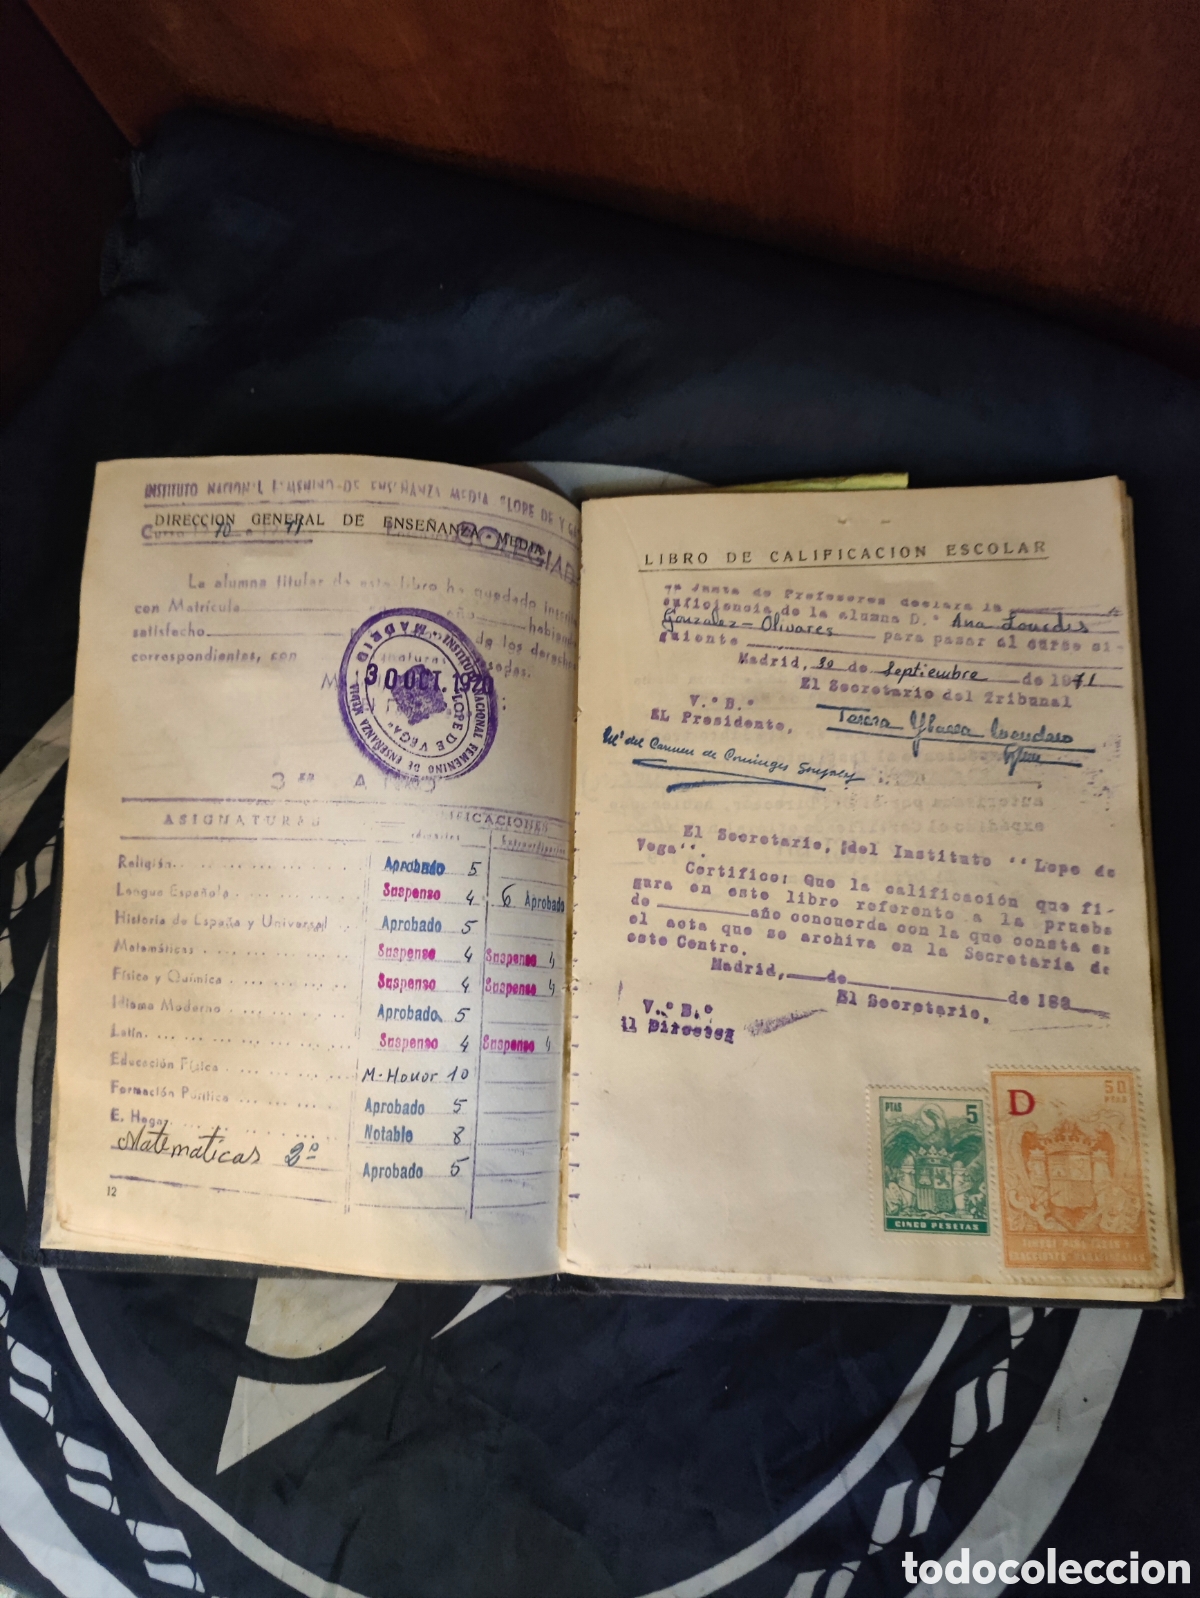 INSTITUTO NACIONAL FEMENINO DE ENSEÑANZA MEDIA "LOPE DE VEGA
DIRECCION GENERAL DE ENSEÑANZA MEDIA
Curso 1970 a 1971
COLEGIAD
La alumna titular de este libro ha quedado inscrit
con Matrícula año habiend
satisfecho de los derechos
correspondientes, con
MADRID INSTITUTO NACIONAL FEMENINO DE ENSEÑANZA MEDIA
"LOPE DE VEGA"
30 OCT. 197
3er AÑO
ASIGNATURAS CALIFICACIONES
Religión Aprobado 5
Lengua Española Suspenso 4 6 Aprobado
Historia de España y Universal Aprobado 5
Matemáticas Suspenso 4 Suspenso 4
Física y Química Suspenso 4 Suspenso 4
Idioma Moderno Aprobado 5
Latín Suspenso 4 Suspenso 4
Educación Física M. Honor 10
Formación Política Aprobado 5
E. Hogar Notable 8
Matematicas 2º Aprobado 5
12
LIBRO DE CALIFICACION ESCOLAR
Junta de Profesores declara la
suficiencia de la alumna D.ª Ana Lourdes
Gonzalez-Olivares para pasar al curso si-
guiente
Madrid, 30 de Septiembre de 1971
El Secretario del Tribunal
V.º B.º
EL Presidente,
Teresa
Mª del Carmen de
El Secretario, del Instituto "Lope de
Vega".
Certifico: Que la calificación que fi-
gura en este libro referente a la prueba
de año concuerda con la que consta en
el acta que se archiva en la Secretaría de
este Centro.
Madrid, de de 196
El Secretario,
V.º B.º
il Director
PTAS 5
CINCO PESETAS
D
50
PTAS
todocoleccion